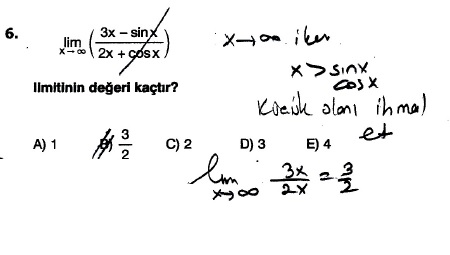 6.
lim x→∞ (3x – sinx / 2x + cosx)
limitinin değeri kaçtır?
A) 1 B) 3/2 C) 2 D) 3 E) 4
x→∞ iken
x > sinx
cosx
Küçük olanı ihmal
et
lim x→∞ 3x/2x = 3/2